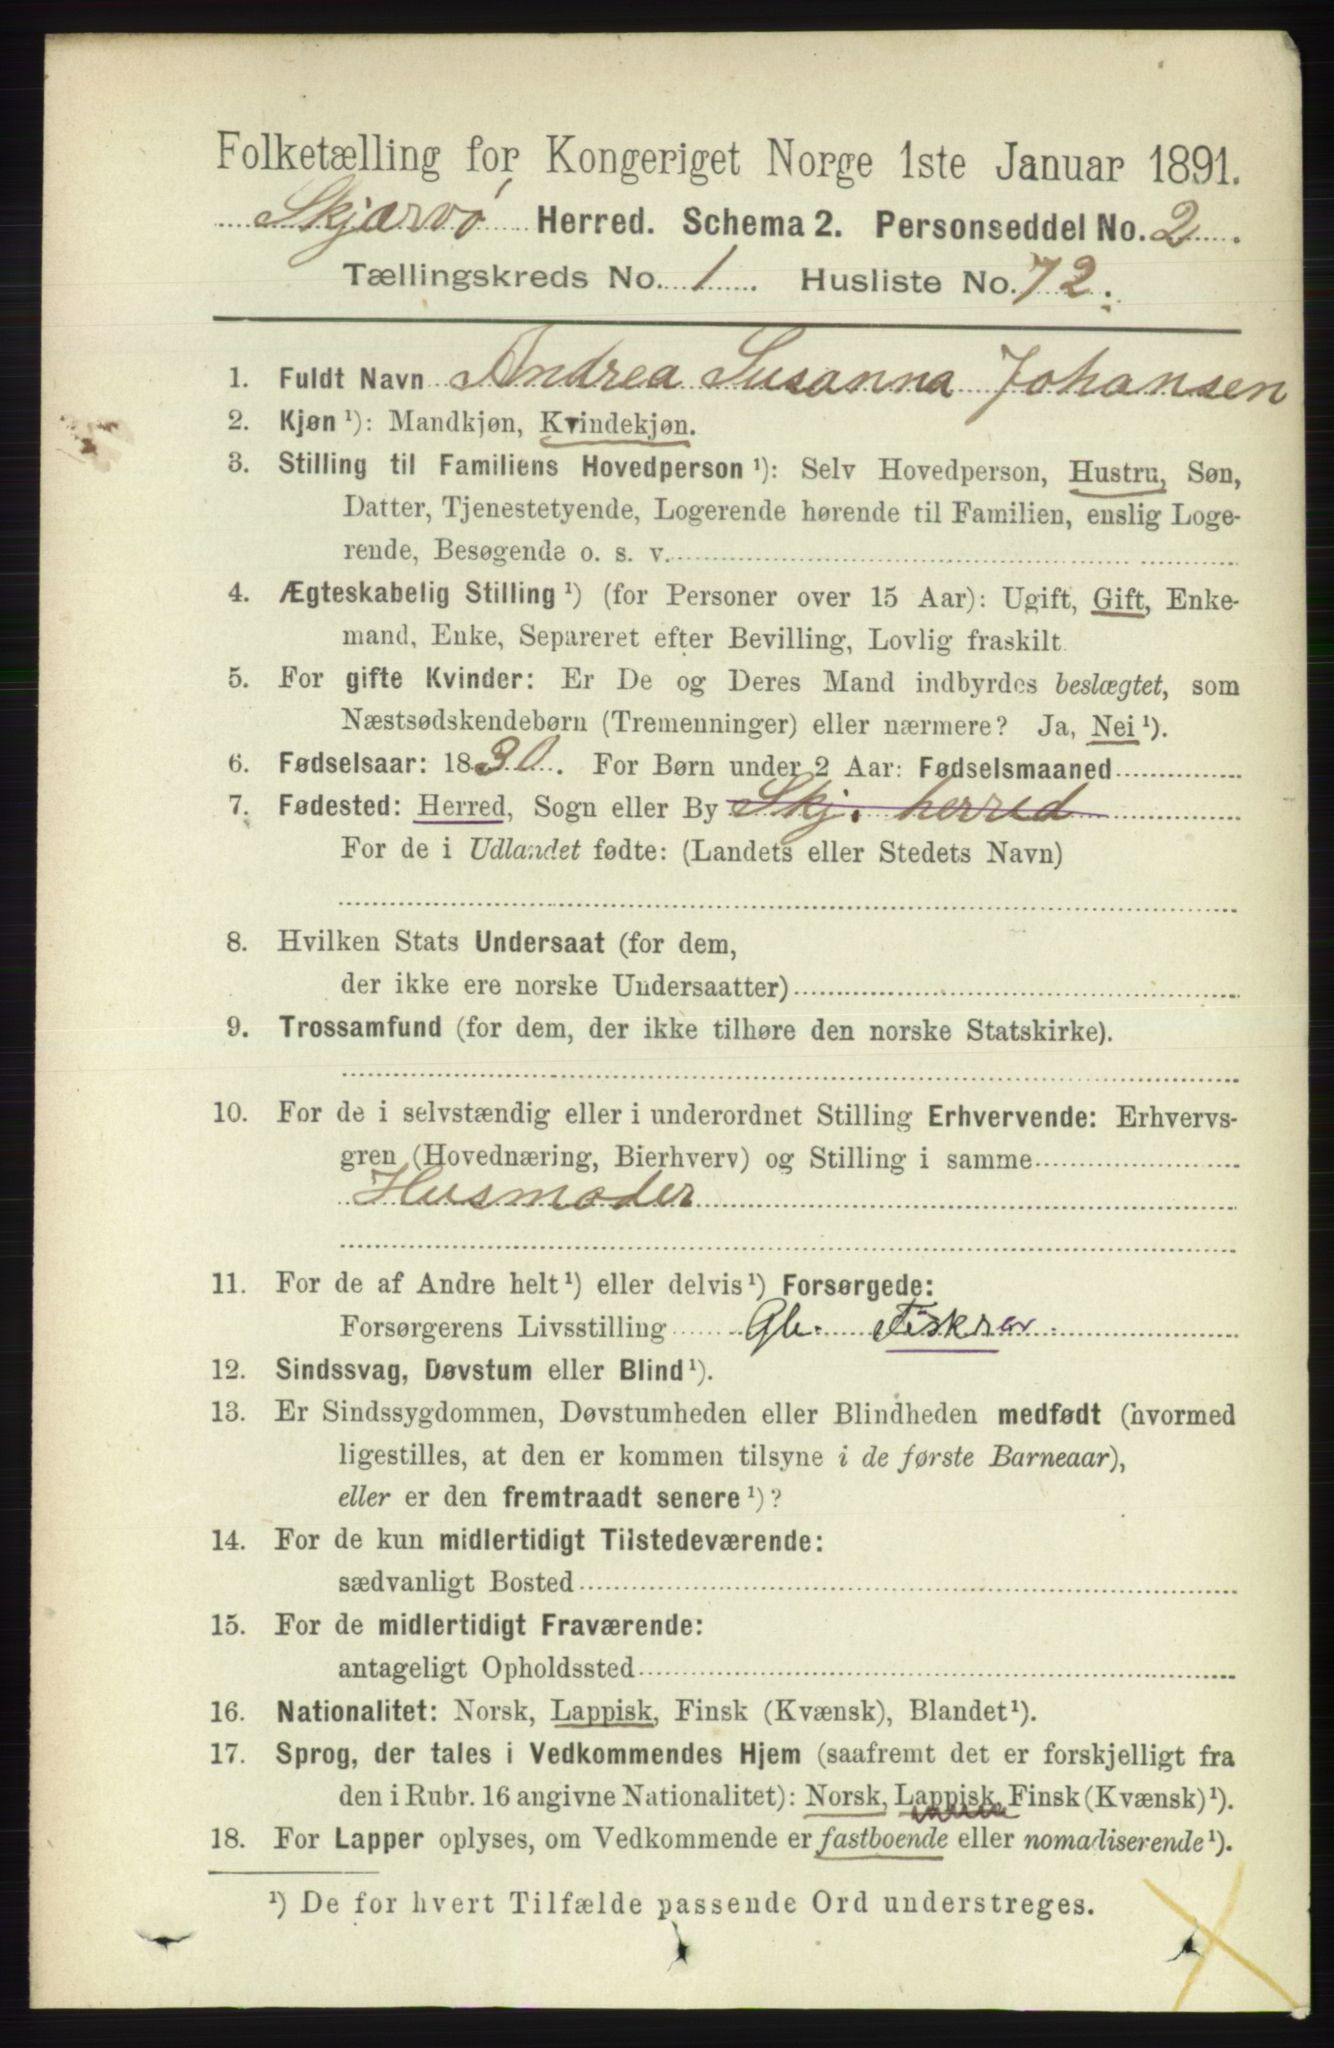 Folketælling for Kongeriget Norge 1ste Januar 1891.
Skjærvø Herred. Schema 2. Personseddel No. 2.
Tællingskreds No. 1. Husliste No. 72.
1. Fuldt Navn Andrea Susanna Johansen
2. Kjøn ¹): Mandkjøn, Kvindekjøn.
3. Stilling til Familiens Hovedperson ¹): Selv Hovedperson, Hustru, Søn,
Datter, Tjenestetyende, Logerende hørende til Familien, enslig Loge-
rende, Besøgende o. s. v.
4. Ægteskabelig Stilling ¹) (for Personer over 15 Aar): Ugift, Gift, Enke-
mand, Enke, Separeret efter Bevilling, Lovlig fraskilt.
5. For gifte Kvinder: Er De og Deres Mand indbyrdes beslægtet, som
Næstsødskendebørn (Tremenninger) eller nærmere? Ja, Nei ¹).
6. Fødselsaar: 1830. For Børn under 2 Aar: Fødselsmaaned
7. Fødested: Herred, Sogn eller By Skj. herred
For de i Udlandet fødte: (Landets eller Stedets Navn)
8. Hvilken Stats Undersaat (for dem,
der ikke ere norske Undersaatter)
9. Trossamfund (for dem, der ikke tilhøre den norske Statskirke).
10. For de i selvstændig eller i underordnet Stilling Erhvervende: Erhvervs-
gren (Hovednæring, Bierhverv) og Stilling i samme
Husmoder
11. For de af Andre helt ¹) eller delvis ¹) Forsørgede:
Forsørgerens Livsstilling Fiskrer.
12. Sindssvag, Døvstum eller Blind ¹).
13. Er Sindssygdommen, Døvstumheden eller Blindheden medfødt (hvormed
ligestilles, at den er kommen tilsyne i de første Barneaar),
eller er den fremtraadt senere ¹)?
14. For de kun midlertidigt Tilstedeværende:
sædvanligt Bosted
15. For de midlertidigt Fraværende:
antageligt Opholdssted
16. Nationalitet: Norsk, Lappisk, Finsk (Kvænsk), Blandet ¹).
17. Sprog, der tales i Vedkommendes Hjem (saafremt det er forskjelligt fra
den i Rubr. 16 angivne Nationalitet): Norsk, Lappisk, Finsk (Kvænsk) ¹).
18. For Lapper oplyses, om Vedkommende er fastboende eller nomadiserende ¹).
¹) De for hvert Tilfælde passende Ord understreges.